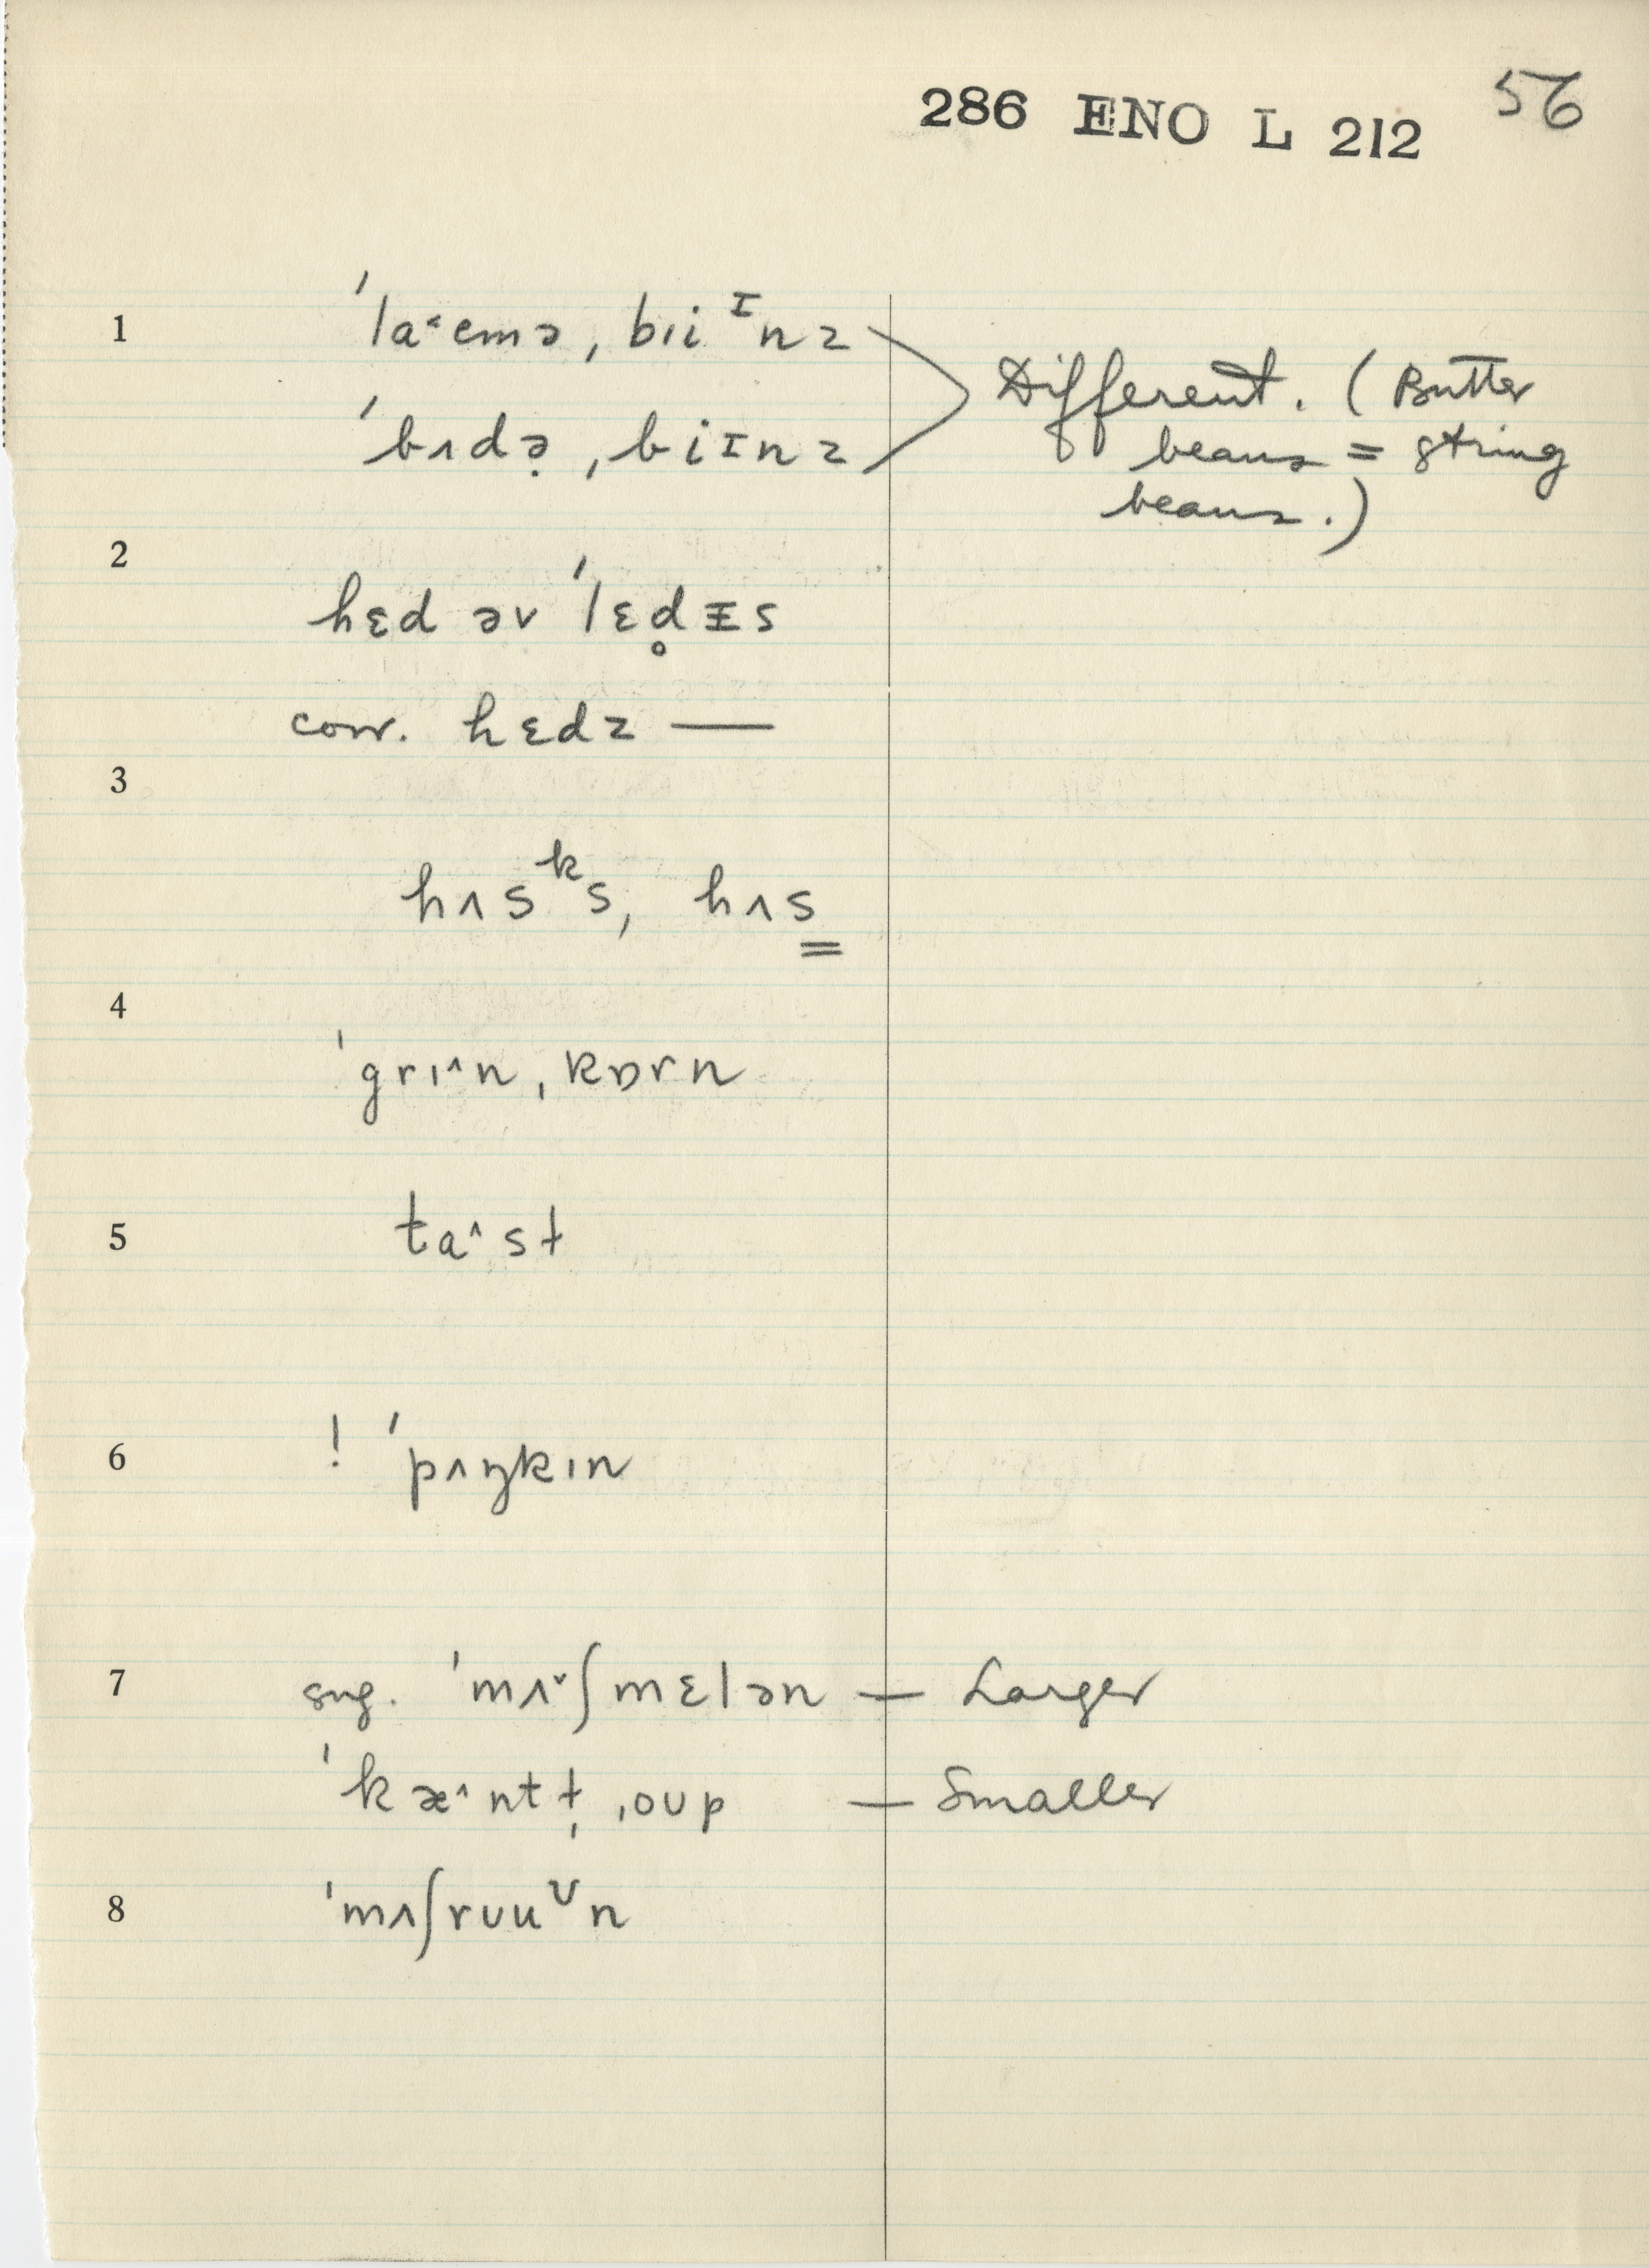 286 ENO L 212 56
1 ˈla˂emə ˌbɪiᶦnz
ˈbʌdə̣ ˌbiɪnz
Different. (Butter
beans = string
beans.)
2
hɛd əv ˈlɛd̥ᵻs
corr. hɛdz —
3
hʌsᵏs, hʌs̳
4
ˈgrɪ^n ˌkɒrn
5 ta^st
6 ! ˈpʌŋkɪn
7 sug. ˈmʌ˅ʃmɛlən — Larger
ˈkæ^ntt̩ ˌoup — Smaller
8 ˈmʌʃrʊuᶷn